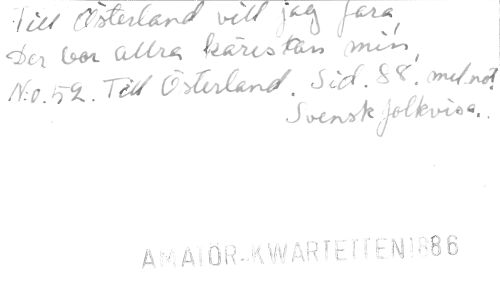 Till Österland vill jag fara,
Der bor allra kärestan min,
N:o. 52. Till Österland. Sid. 88. med not.
Svensk folkvisa.
AMATÖR-KWARTETTEN 1886